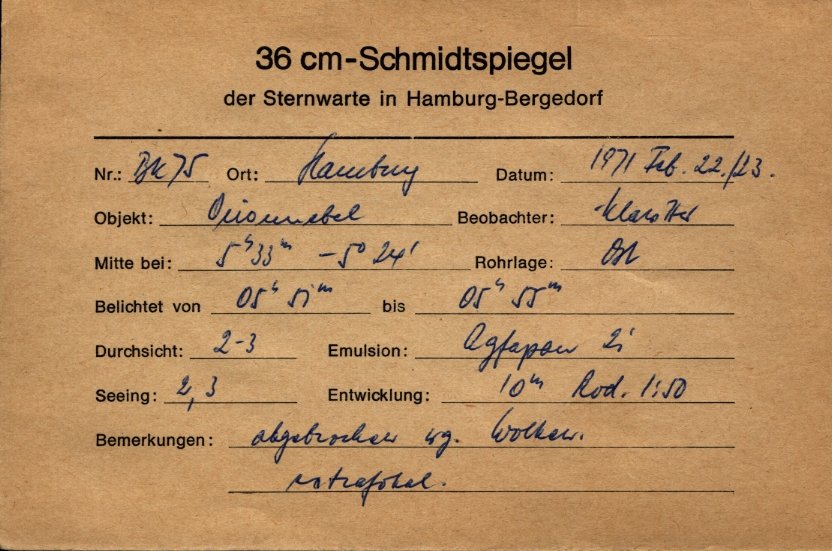 36 cm-Schmidtspiegel
der Sternwarte in Hamburg-Bergedorf
Nr.: BK75 Ort: Hamburg Datum: 1971 Feb. 22./23.
Objekt: Orionnebel Beobachter:
Mitte bei: 5ʰ33ᵐ -5° 24' Rohrlage: Ost
Belichtet von 05ʰ 51ᵐ bis 05ʰ 55ᵐ
Durchsicht: 2-3 Emulsion: Agfapan
Seeing: 2,3 Entwicklung: 10ᵐ Rod. 1:50
Bemerkungen: abgebrochen wg. Wolken.
extrafokal.